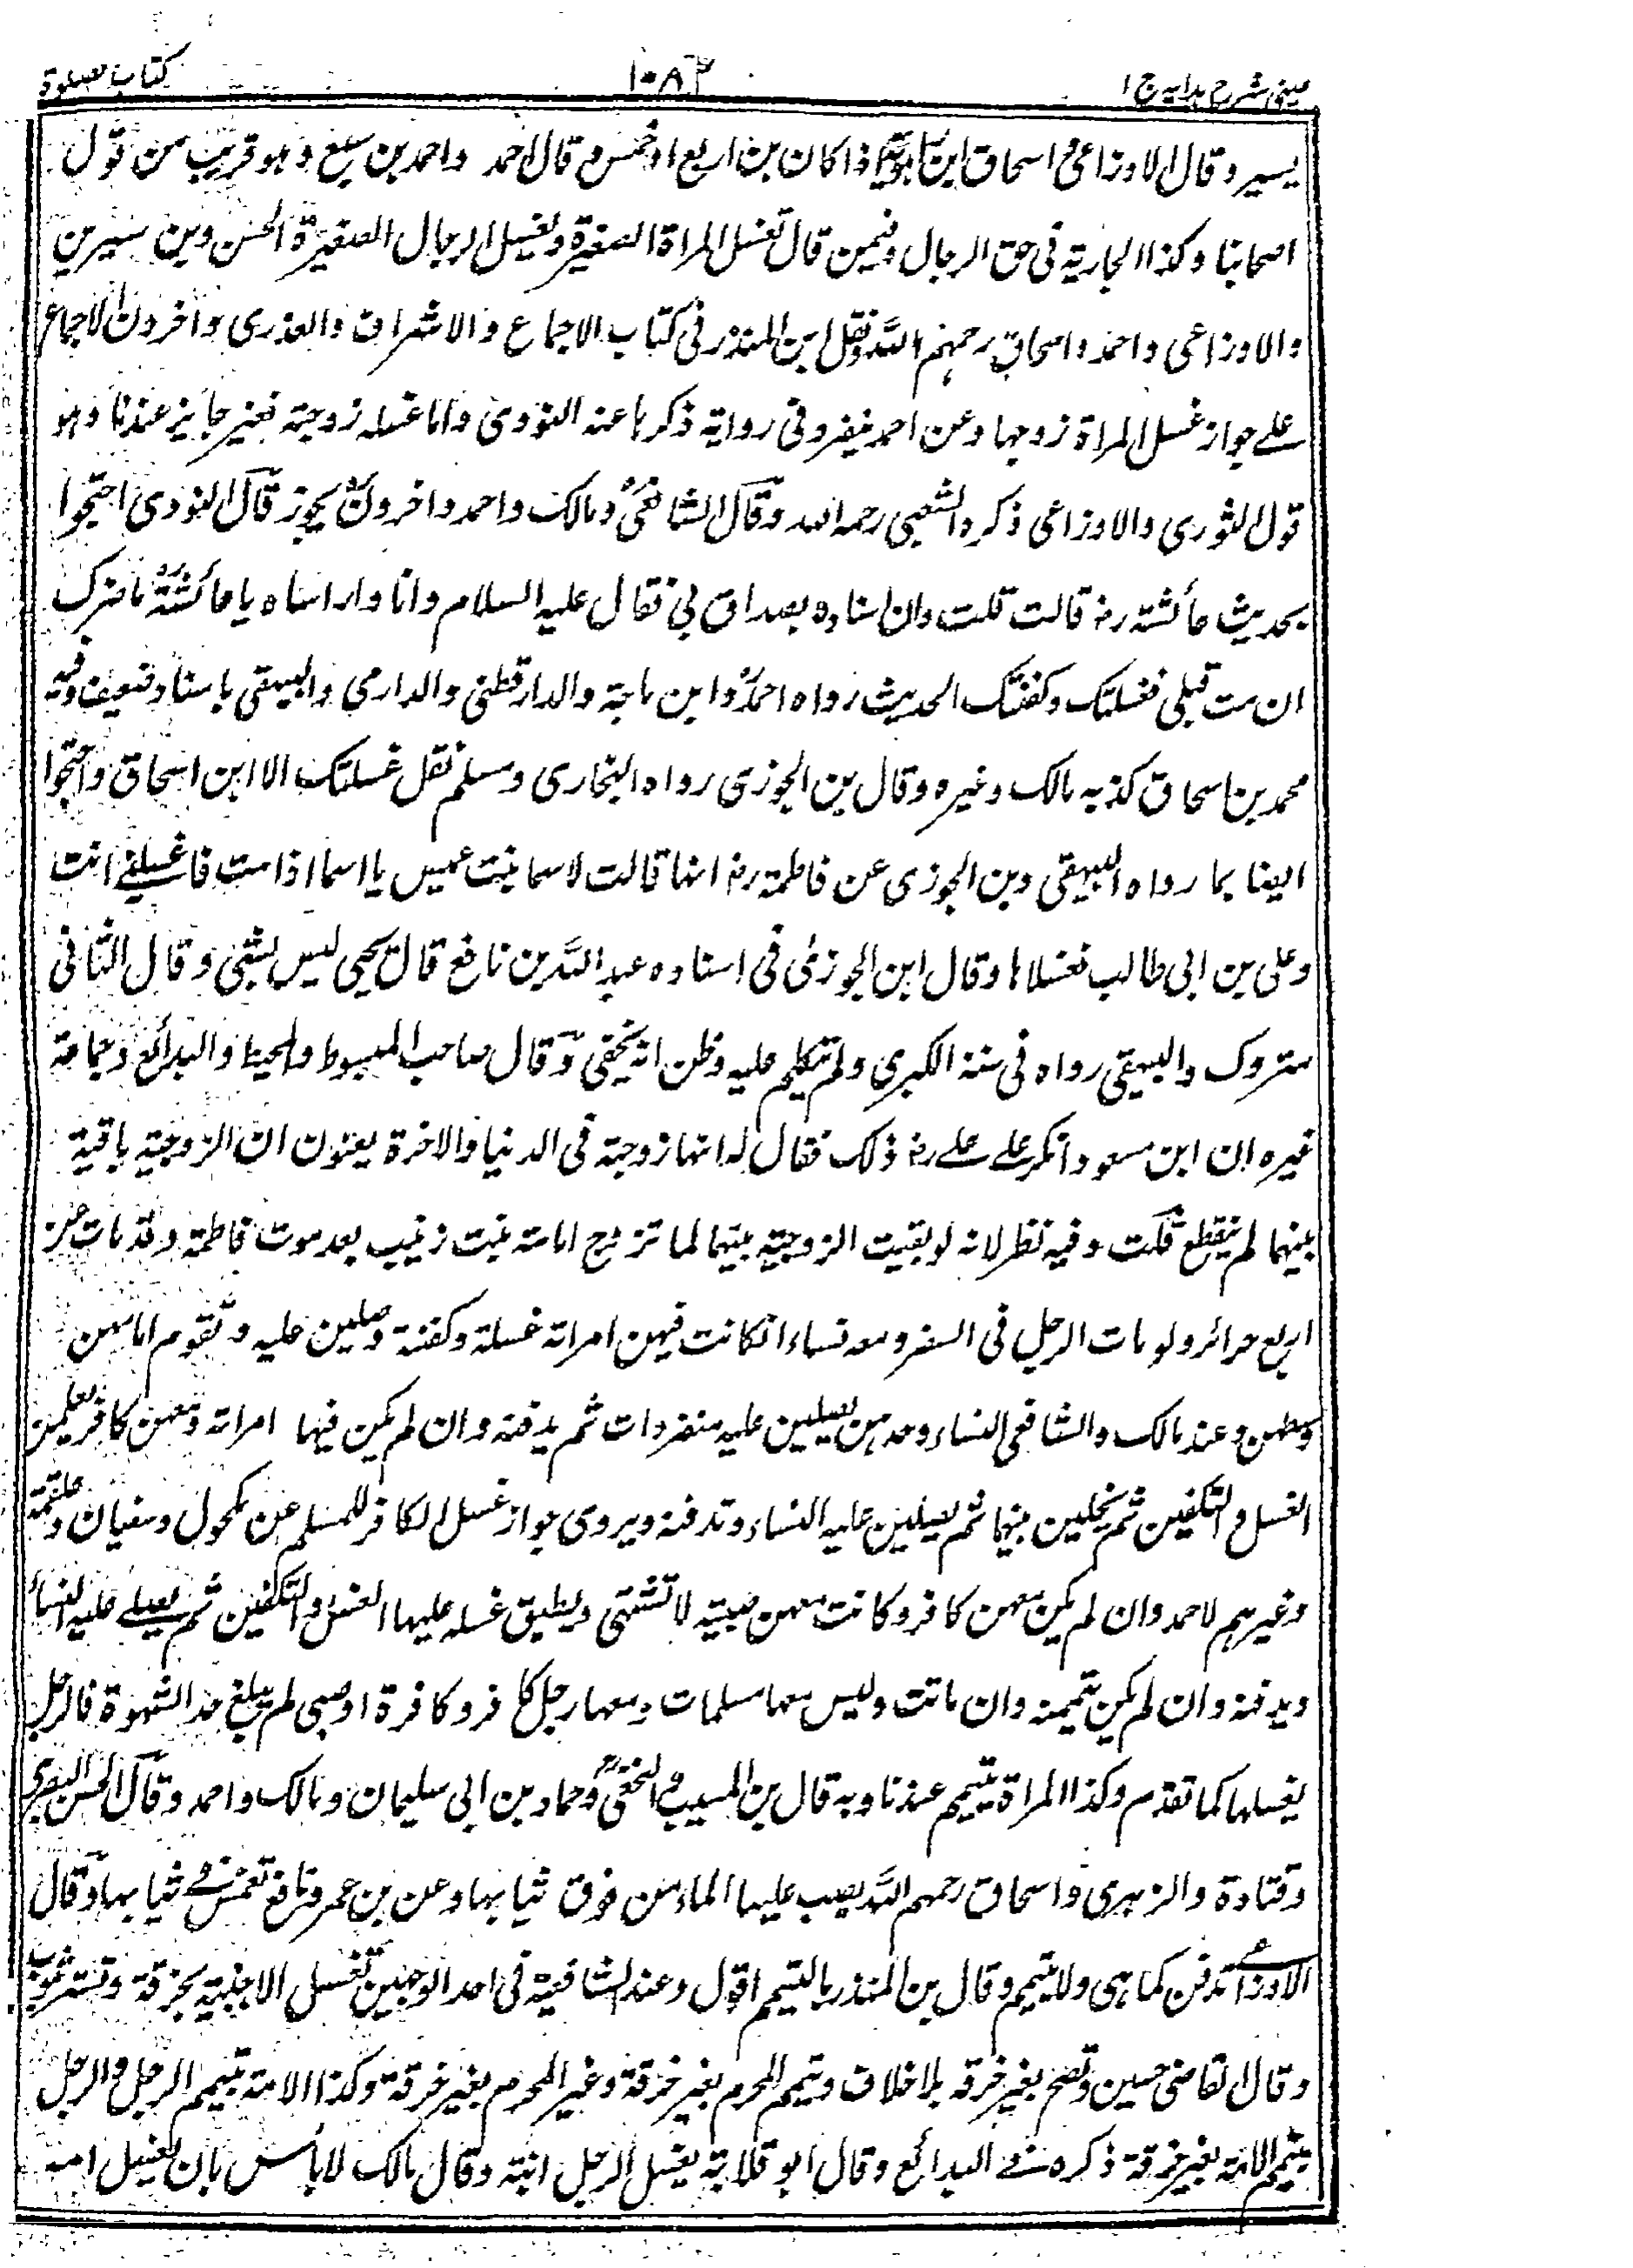 عینی شرح ہدایہ ج ۱
۱۰۸۴
کتاب الصلوۃ
یسیر وقال الاوزاعی و اسحاق ابن راہویہ اذا کان بن اربع او خمس و قال احمد واحمد بن سبع و ہو قریب من قول
اصحابنا وکذا الجاریة فی حق الرجال وفیمن قال تغسل المراة الصغیرة ولغیسل الرجال الصغیرة الحسن وبن سیرین
والاوزاعی واحمد واسحاق رحمہم اللہ ونقل ابن المنذر فی کتاب الاجماع والاشراف والعذری واخرون الاجماع
علے جواز غسل المراة زوجہا وعن احمد ینفر وفی روایة ذکرہا عنہ النووی واما غسلہ زوجتہ فغیر جایز عندنا وہو
قول الثوری والاوزاعی ذکرہ الشعبی رحمہ اللہ وقال الشافعی و مالک واحمد واخرون یجوز قال النووی احتجوا
بحدیث عائشة رض قالت قلت وان اسنادہ بصداق بی فقال علیہ السلام وانا وارأساہ یا عائشة ماضرک
ان مت قبلی فغسلتک وکفنتک الحدیث رواہ احمد وابن ماجة والدارقطنی والدارمی والبیہقی باسناد ضعیف وفیہ
محمد بن اسحاق کذبہ مالک وغیرہ وقال بن الجوزی رواہ البخاری ومسلم نقل غسلتک الا ابن اسحاق واحتجوا
ایضا بما رواہ البیہقی وبن الجوزی عن فاطمة رض انہا قالت لاسما بنت عمیس یا اسما اذا مت فاغسلینے انت
وعلی بن ابی طالب فغسلاہا وقال ابن الجوزی فی اسنادہ عبد اللہ بن نافع قال یحیی لیس بشئ وقال الثانی
متروک والبیہقی رواہ فی سننہ الکبری ولم یتکلم علیہ وظن انہ یخفی وقال صاحب المبسوط والمحیط والبدائع وجماعة
غیرہ ان ابن مسعود انکر علے علے رض ذلک فقال لہ انہا زوجتہ فی الدنیا والاخرة یعنون ان الزوجیة باقیة
بینہما لم ینقطع قلت وفیہ نظر لانہ لو بقیت الزوجیة بینہما لما تزوج امامة بنت زینب بعد موت فاطمة وقد مات عن
اربع حرائر ولو مات الرجل فی السفر ومعہ نساء انکانت فیہن امراتہ غسلتہ وکفنتہ وصلین علیہ وتقوم امامہن
وسطہن وعند مالک والشافعی النساء وحدہن یصلین علیہ منفردات ثم یدفنہ وان لم یکن فیہا امراتہ ومعہن کافر یعلمن
الغسل والتکفین ثم یخلین بینہما ثم یصلین علیہ النساء وتدفنہ ویروی جواز غسل الکافر للمسلم عن مکحول وسفیان وعلقمة
وغیرہم لاحمد وان لم یکن معہن کافر وکانت معہن صبیة لا تشتہی ویطیق غسلہ علیہا الغسل والتکفین ثم یصلے علیہ النساء
ویدفنہ وان لم یکن یتیمنہ وان ماتت ولیس معہا مسلمات ومعہا رجل کافر وکافرة او صبی لم یبلغ حد الشہوة فالرجل
یغسلہا کما تقدم وکذا المراة یتیم عندنا وبہ قال بن المسیب والنخعی وحماد بن ابی سلیمان ومالک واحمد وقال الحسن البصری
وقتادة والزہری واسحاق رحمہم اللہ یصب علیہا الماء من فوق ثیابہا وعن بن عمر ونافع تغمس فے ثیابہا وقال
الاوزاعے تدفن کما ہی ولا یتیم وقال بن المنذر بالتیمم اقول وعند الشافعیة فی احد الوجہین تغسل الاجنبیة بخرقة وتستر بثوب
وقال القاضی حسین وتصح بغیر خرقة بلا خلاف ویتیمم المحرم بغیر خرقة وغیر المحرم بغیر خرقة وکذا الامة یتیمم الرجل والرجل
یتیمم الامة بغیر خرقة ذکرہ فے البدائع وقال ابو قلابة یغسل الرجل ابنتہ وقال مالک لا بأس بان یغسل امہ